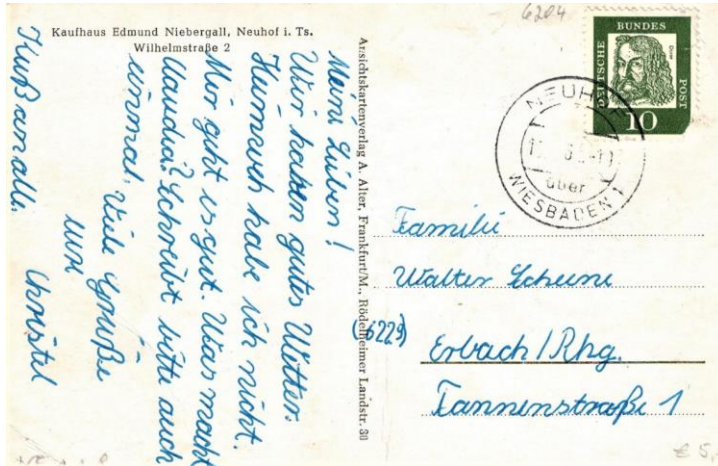 Kaufhaus Edmund Niebergall, Neuhof i. Ts.
Wilhelmstraße 2
Meine Lieben!
Wir haben gutes Wetter.
Heimweh habe ich nicht.
Mir geht es gut. Was macht
Claudia? Schreibt bitte auch
einmal. Viele Grüße
eure
Christel
Kuß an alle.
Ansichtskartenverlag A. Alter, Frankfurt/M., Rödelheimer Landstr. 30
6204
DEUTSCHE BUNDES POST
Dürer
10
NEUHOF
über
WIESBADEN 1
Familie
Walter Scheune
(6229)
Erbach / Rhg.
Tannenstraße 1
€ 5,